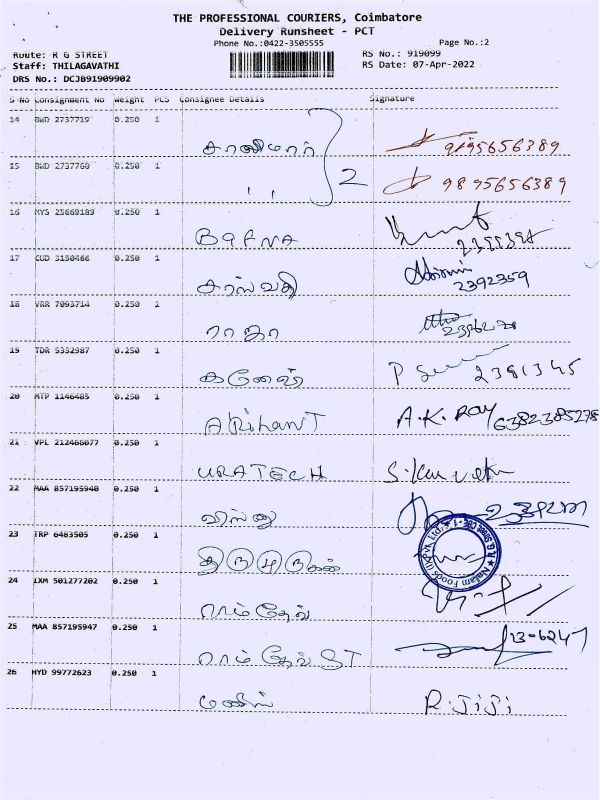 THE PROFESSIONAL COURIERS, Coimbatore
Delivery Runsheet - PCT
Phone No.:0422-3505555
Page No.:2
Route: R G STREET
RS No.: 919099
Staff: THILAGAVATHI
RS Date: 07-Apr-2022
DRS No.: DCJB91909902
S No Consignment No Weight PCS Consignee Details Signature
14 BWD 2737719 0.250 1 9195656389
15 BWD 2737760 0.250 1 ,, 2 9895656389
16 MYS 25669189 0.250 1 BAFNA
17 CUD 3150466 0.250 1 சரஸ்வதி 2392359
18 VRR 7093714 0.250 1 ராஜா
19 TDR 5332987 0.250 1 கணேஷ் P 2381345
20 MTP 1146485 0.250 1 ARihANT A.K. ROY 6382385278
21 VPL 212466077 0.250 1 URATECH
22 MAA 857195940 0.250 1 விஷ்ணு
23 TRP 6483505 0.250 1 திருமுருகன் Nalam Foods Pvt. Ltd.
24 IXM 501277202 0.250 1 ராம்தேவ்
25 MAA 857195947 0.250 1 ராம்தேவ் ST
26 HYD 99772623 0.250 1 R.JiJi